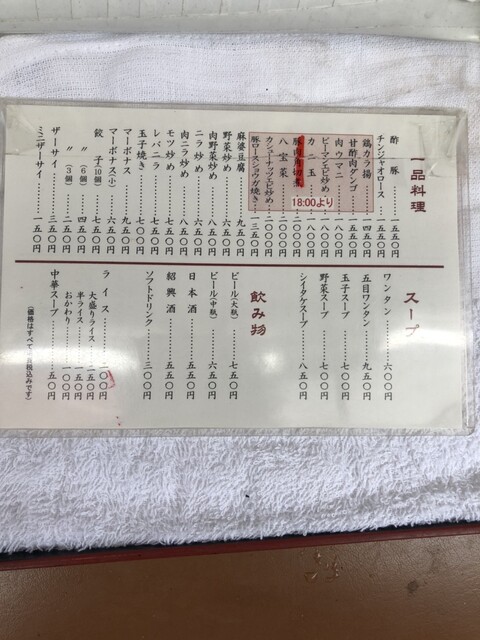 一品料理
酢豚……一五五〇円
チンジャオロース……一五五〇円
鶏カラ揚……一四五〇円
甘酢肉ダンゴ……一五五〇円
肉ウマニ……一八〇〇円
ピーマンエビ炒め……一八〇〇円
カニ玉……一八〇〇円
豚肉角切煮
八宝菜……二〇〇〇円
カシューナッツエビ炒め……二〇〇〇円
豚ロースショウガ焼き……一三五〇円
18:00より
麻婆豆腐……九五〇円
野菜炒め……八五〇円
肉野菜炒め
ニラ炒め
肉ニラ炒め
モツ炒め
レバニラ
玉子焼き
マーボナス……九五〇円
マーボナス(小)……六五〇円
餃子(10個)……七五〇円
〃(6個)……四五〇円
〃(3個)……二五〇円
ザーサイ……三五〇円
ミニザーサイ……一五〇円
スープ
ワンタン……六〇〇円
五目ワンタン……九五〇円
玉子スープ……七〇〇円
野菜スープ……七〇〇円
シイタケスープ……八五〇円
飲み物
ビール(大瓶)……七五〇円
ビール(中瓶)……六五〇円
日本酒……五五〇円
紹興酒……五五〇円
ソフトドリンク……三〇〇円
ライス……二〇〇円
大盛りライス……二五〇円
半ライス……一五〇円
おかわり……一〇〇円
中華スープ……五〇円
(価格はすべて税込みです)